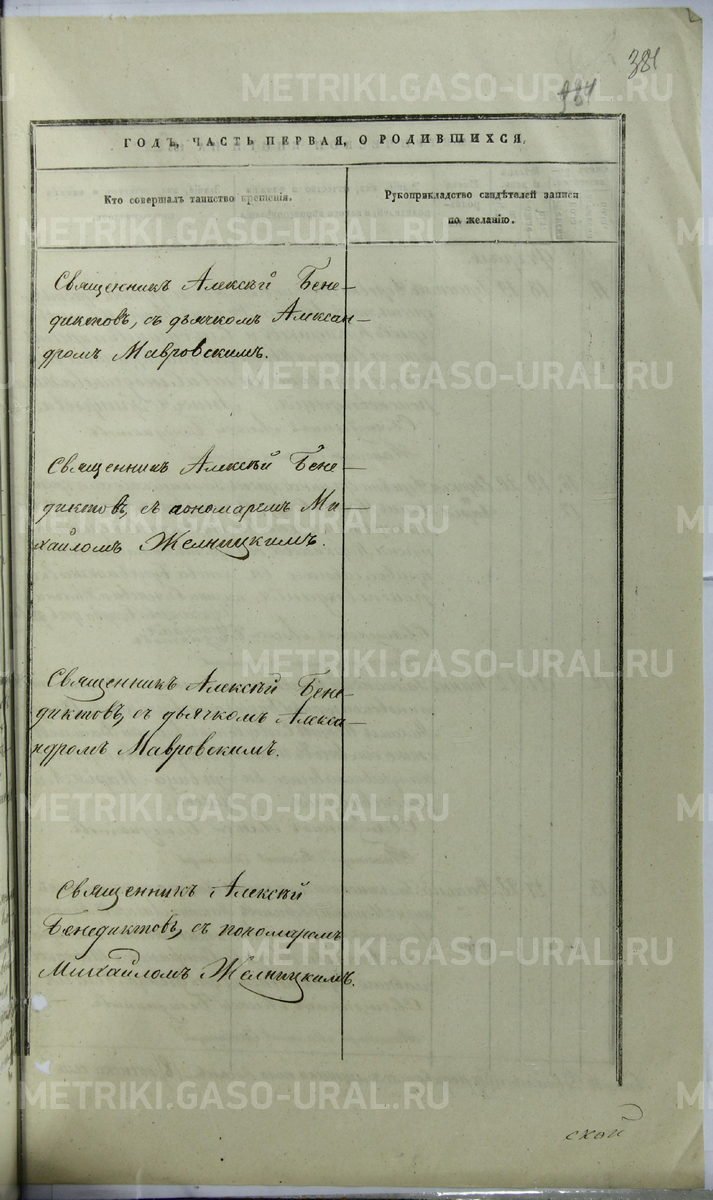 381
ГОДЪ, ЧАСТЬ ПЕРВАЯ, О РОДИВШИХСЯ,
Кто совершалъ таинство крещенія.
Рукоприкладство свидѣтелей записи
по желанію.
Священникъ Алексѣй Бене-
диктовъ, съ дьячкомъ Алексан-
дромъ Мавровскимъ.
Священникъ Алексѣй Бене-
диктовъ, съ пономаремъ Ми-
хайломъ Желницкимъ.
Священникъ Алексѣй Бене-
диктовъ, съ дьячкомъ Алекса-
ндромъ Мавровскимъ.
Священникъ Алексѣй
Бенедиктовъ, съ пономаремъ
Михайломъ Желницкимъ.
ской
METRIKI.GASO-URAL.RU